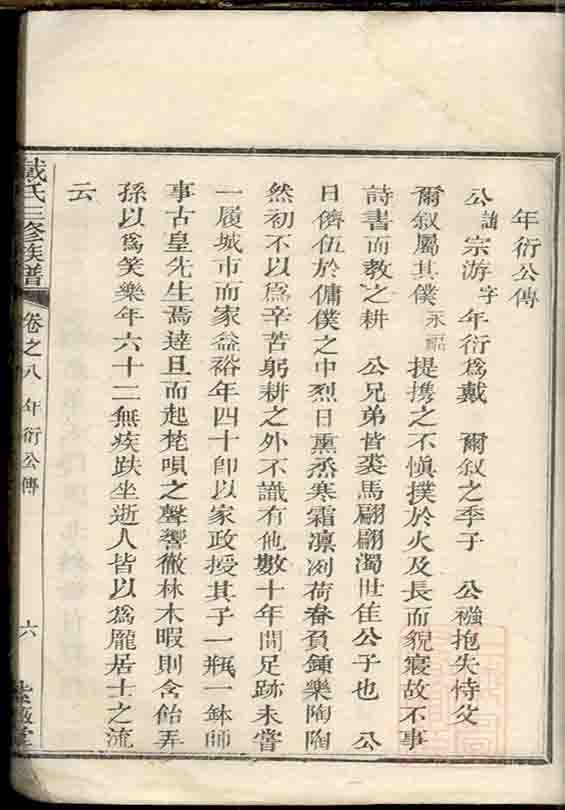 年衍公傳
公諱宗游字年衍爲戴 爾敘之季子 公襁抱失恃父
爾敘屬其僕永福提携之不愼撲於火及長而貌寢故不事
詩書而教之耕 公兄弟皆裘馬翩翩濁世佳公子也 公
日儕伍於傭僕之中烈日熏烝寒霜凛冽荷畚負鍾樂陶陶
然初不以爲辛苦躬耕之外不識有他數十年間足跡未嘗
一履城市而家益裕年四十卽以家政授其子一瓶一鉢師
事古皇先生焉達旦而起梵唄之聲響徹林木暇則含飴弄
孫以爲笑樂年六十二無疾趺坐逝人皆以爲龐居士之流
云
戴氏三修族譜 卷之八 年衍公傳 六